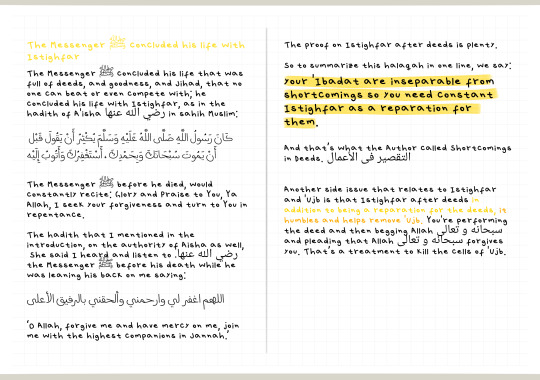 The Messenger ﷺ Concluded his life with
Istighfar
The Messenger ﷺ Concluded his life that was
full of deeds, and goodness, and Jihad, that no
one Can beat or even Compete with; he
Concluded his life with Istighfar, as in the
hadith of A'isha رضي الله عنها in sahih Muslim:
كَانَ رَسُولُ اللَّهِ صَلَّى اللَّهُ عَلَيْهِ وَسَلَّمَ يُكْثِرُ أَنْ يَقُولَ قَبْلَ
أَنْ يَمُوتَ سُبْحَانَكَ وَبِحَمْدِكَ، أَسْتَغْفِرُكَ وَأَتُوبُ إِلَيْهِ
The Messenger ﷺ before he died, would
Constantly recite: Glory and Praise to You, Ya
Allah, I seek your forgiveness and turn to You in
repentance.
The hadith that I mentioned in the
introduction, on the authority of Aisha as well,
رضي الله عنها. She said I heard and listen to
the Messenger ﷺ before his death while he
was leaning his back on me saying:
اللهم اغفر لي وارحمني وألحقني بالرفيق الأعلى
'O Allah, forgive me and have mercy on me, join
me with the highest companions in Jannah.'
The proof on Istighfar after deeds is plenty.
So to summarize this halaqah in one line, we say:
your 'Ibadat are inseparable from
shortComings so you need Constant
Istighfar as a reparation for
them.
And that's what the Author Called ShortComings
in Deeds. التقصير في الأعمال
Another side issue that relates to Istighfar
and 'Ujb is that Istighfar after deeds in
addition to being a reparation for the deeds, it
humbles and helps remove 'Ujb. You're performing
the deed and then begging Allah سبحانه و تعالى
and pleading that Allah سبحانه و تعالى forgives
you. That's a treatment to kill the Cells of 'Ujb.